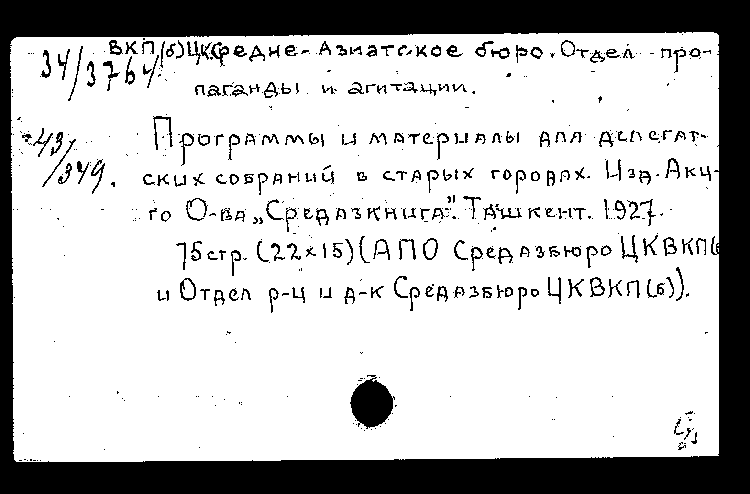 34/3764 ВКП(б) ЦК Средне-Азиатское бюро. Отдел про-
паганды и агитации.
43/349. Программы и материалы для делегат-
ских собраний в старых городах. Изд. Акц-
го О-ва „Средазкнига". Ташкент. 1927.
75 стр. (22×15) (АПО Средазбюро ЦКВКП(б
и Отдел р-ц и д-к Средазбюро ЦКВКП(б)).